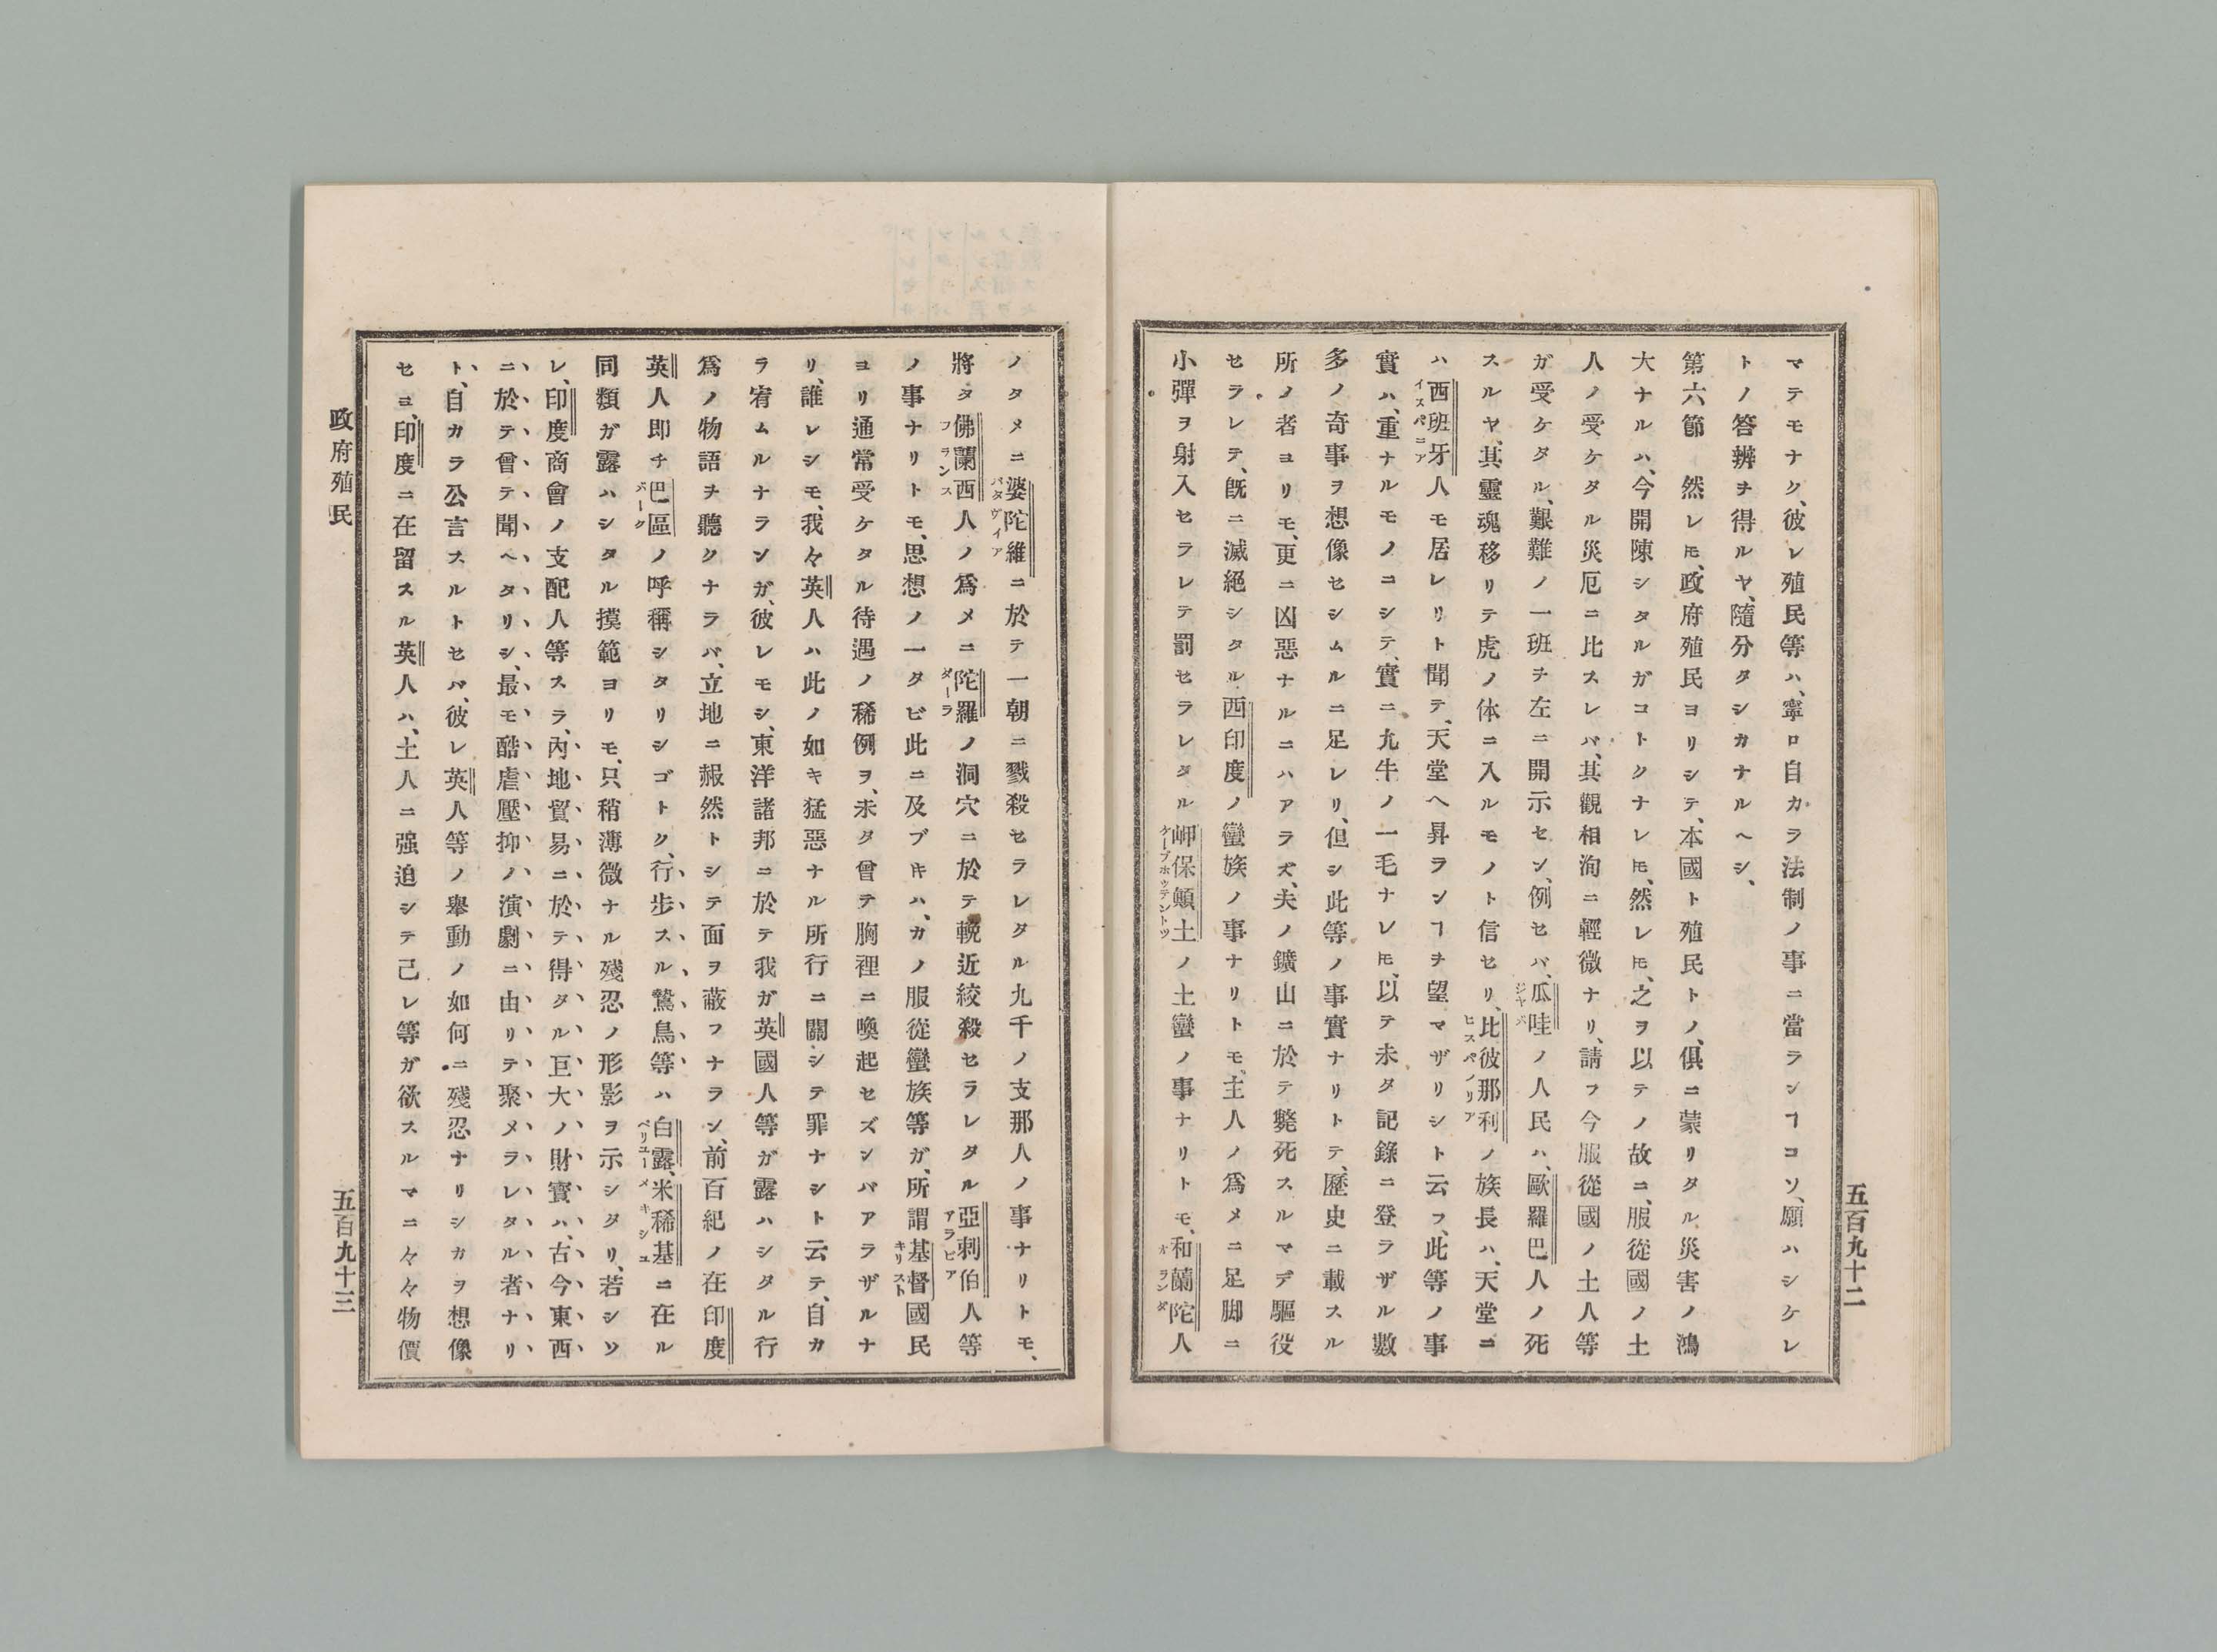 マテモナク、彼レ殖民等ハ、寧ロ自カラ法制ノ事ニ當ランヿコソ、願ハシケレ
トノ答辨ヲ得ルヤ、隨分タシカナルヘシ、
第六節　然レ𪜈、政府殖民ヨリシテ、本國ト殖民トノ、俱ニ蒙リタル災害ノ鴻
大ナルハ、今開陳シタルガコトクナレ𪜈、然レ𪜈、之ヲ以テノ故ニ、服從國ノ土
人ノ受ケタル災厄ニ比スレバ、其觀相洵ニ輕微ナリ、請フ今服從國ノ土人等
ガ受ケタル、艱難ノ一班ヲ左ニ開示セン、例セバ、瓜哇ノ人民ハ、歐羅巴人ノ死
ジヤバ
スルヤ、其靈魂移リテ虎ノ体ニ入ルモノト信セリ、比彼那利ノ族長ハ、天堂ニ
ヒスペノリア
ハ西班牙人モ居レリト聞テ、天堂ヘ昇ランヿヲ望マザリシト云フ、此等ノ事
イスペニア
實ハ、重ナルモノニシテ、實ニ九牛ノ一毛ナレ𪜈、以テ未タ記錄ニ登ラザル數
多ノ奇事ヲ想像セシムルニ足レリ、但シ此等ノ事實ナリトテ、歷史ニ載スル
所ノ者ヨリモ、更ニ凶惡ナルニハアラズ、夫ノ鑛山ニ於テ斃死スルマデ驅役
セラレテ、旣ニ滅絕シタル西印度ノ蠻族ノ事ナリトモ、主人ノ爲メニ足脚ニ
小彈ヲ射入セラレテ罰セラレタル岬保顚土ノ土蠻ノ事ナリトモ、和蘭陀人
ケープホッテントツ
オランダ
五百九十二
ノタメニ婆陀維ニ於テ一朝ニ戮殺セラレタル九千ノ支那人ノ事ナリトモ、
バタヴイア
將タ佛蘭西人ノ爲メニ陀羅ノ洞穴ニ於テ輓近絞殺セラレタル亞剌伯人等
フランス
ダーラ
アラビア
ノ事ナリトモ、思想ノ一タビ此ニ及ブキハ、カノ服從蠻族等ガ、所謂基督國民
キリスト
ヨリ通常受ケタル待遇ノ稀例ヲ、未タ曾テ胸裡ニ喚起セズンバアラザルナ
リ、誰レシモ、我々英人ハ此ノ如キ猛惡ナル所行ニ關シテ罪ナシト云テ、自カ
ラ宥ムルナランガ、彼レモシ、東洋諸邦ニ於テ我ガ英國人等ガ露ハシタル行
爲ノ物語ヲ聽クナラバ、立地ニ赧然トシテ面ヲ蔽フナラン、前百紀ノ在印度
英人即チ巴區ノ呼稱シタリシゴトク、行步スル鷲鳥等ハ白露、米稀基ニ在ル
バーク
ペリユー
メキシユ
同類ガ露ハシタル摸範ヨリモ、只稍薄微ナル殘忍ノ形影ヲ示シタリ、若シソ
レ、印度商會ノ支配人等スラ、內地貿易ニ於テ得タル巨大ノ財寶ハ、古今東西
ニ於テ曾テ聞ヘタリシ、最モ酷虐壓抑ノ演劇ニ由リテ聚メラレタル者ナリ
ト、自カラ公言スルトセバ、彼レ英人等ノ舉動ノ如何ニ殘忍ナリシカヲ想像
セヨ、印度ニ在留スル英人ハ、土人ニ强迫シテ己レ等ガ欲スルマニ々々物價
政府殖民
五百九十三